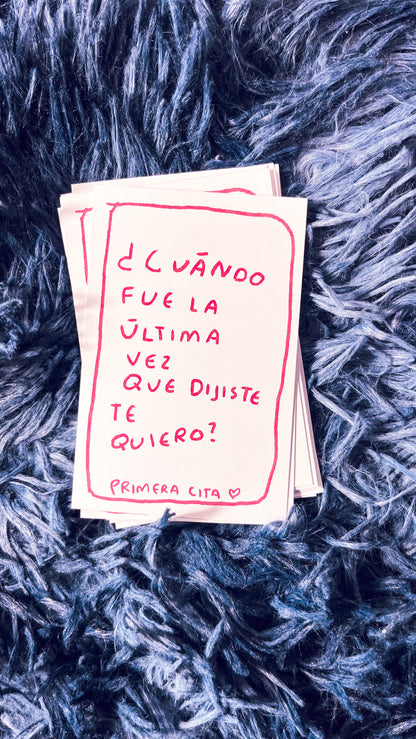 ¿CUÁNDO
FUE LA
ÚLTIMA
VEZ
QUE DIJISTE
TE
QUIERO?
PRIMERA CITA ♡